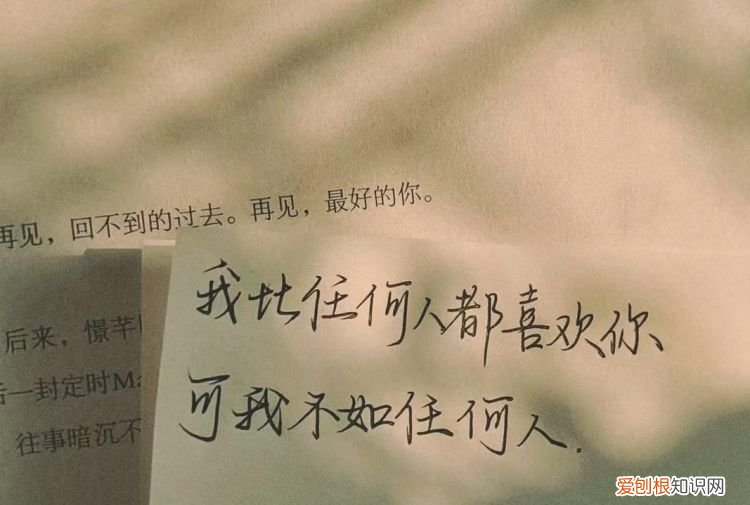 再见，回不到的过去。再见，最好的你。
我比任何人都喜欢你、
可我不如任何人.
后来，憬芊
后一封定时Ma
往事暗沉不
爱刨根知识网